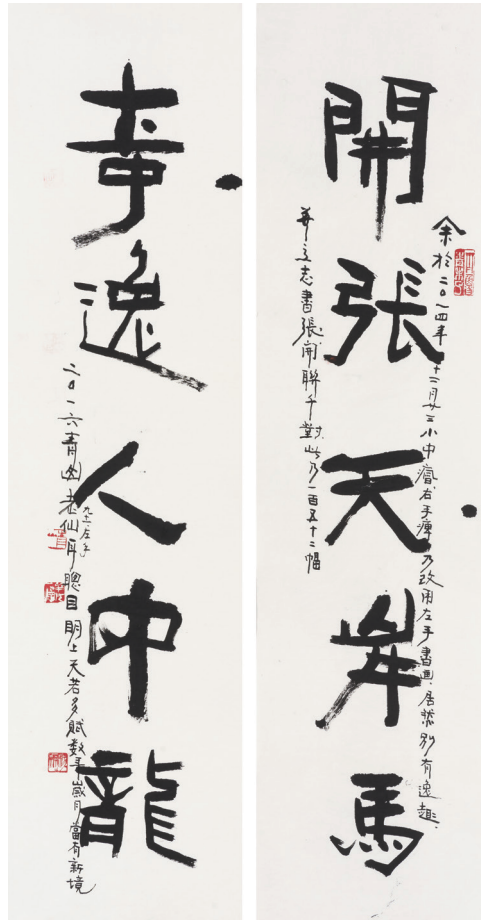 開張天岸馬
余於二〇一四年十二月廿三小中瘋右手乃改用左手書画居然别有逸趣
并立志書張開聯千對此乃一百五十二幅
奇逸人中龍
二〇一六青老仙耳聰目明上天若多賦數年歲月當有新境
左手